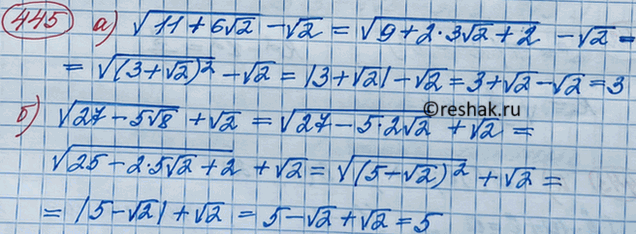 445 а) √(11+6√2) −√2 = √(9+2·3√2+2) −√2 =
= √((3+√2)²) −√2 = |3+√2| −√2 = 3+√2−√2 = 3
©reshak.ru
б) √(27−5√8) +√2 = √(27−5·2√2) +√2 =
√(25−2·5√2+2) +√2 = √((5−√2)²) +√2 =
= |5−√2|+√2 = 5−√2+√2 = 5